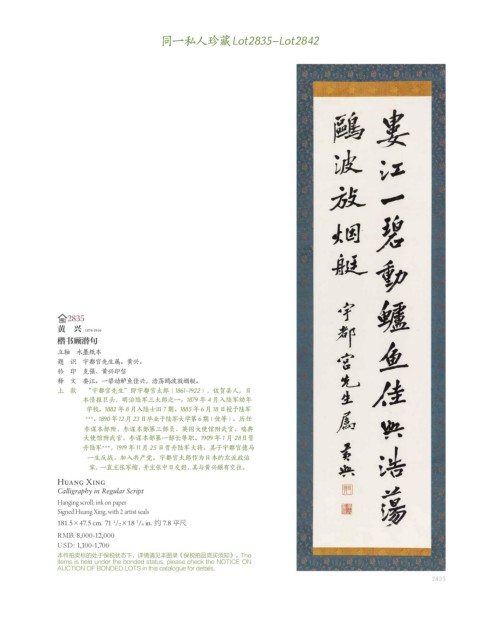 同一私人珍藏Lot2835-Lot2842
婁江一碧動鱸魚佳興浩蕩
鷗波放烟艇
宇都宮先生属 黄興
2835
黄 兴 1874-1916
楷书顾潜句
立轴 水墨纸本
题 识 宇都宫先生属,黄兴。
钤 印 克强、黄兴印信
释 文 娄江。一碧动鲈鱼佳兴,浩荡鸥波放烟艇。
上 款 “宇都宫先生”即宇都宫太郎(1861-1922),佐贺县人,日
本情报巨头,明治陆军三太郎之一。1879年4月入陆军幼年
学校,1882年8月入陆士旧7期,1885年6月18日授予陆军
***,1890年12月23日毕业于陆军大学第6期(优等)。历任
参谋本部附、参谋本部第二部员、英国大使馆附武官、瑞典
大使馆附武官、参谋本部第一部长等职。1909年1月28日晋
升陆军***,1919年11月25日晋升陆军大将。其子宇都宫德马
一生反战,加入共产党。宇都宫太郎作为日本的主流政治
家,一直主张军缩,并主张中日友好,其与黄兴颇有交往。
HUANG XING
Calligraphy in Regular Script
Hanging scroll; ink on paper
Signed Huang Xing, with 2 artist seals
181.5 × 47.5 cm. 71 1/2 × 18 3/4 in. 约 7.8 平尺
RMB: 8,000-12,000
USD: 1,100-1,700
本件拍卖标的处于保税状态下,详情请见本图录《保税拍品竞买须知》。The
items is held under the bonded status, please check the NOTICE ON
AUCTION OF BONDED LOTS in this catalogue for details.
2835